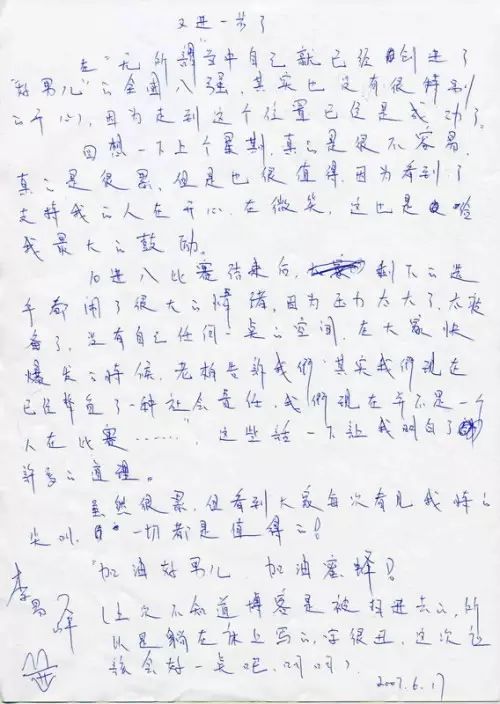 又进一步了
在“无所謂”当中自己就已经创进了
“好男儿”的全国八强,其实也没有很特别
的开心,因为走到这个位置已经是成功了。
回想一下上个星期,真的是很不容易,
真的是很累,但是也很值得,因为看到了
支持我的人在开心,在微笑,这也是给
我最大的鼓励。
10进八比赛结束后,剩下的选
手都闹了很大的情绪,因为压力太大了,太疲
备了,没有自己任何一点的空间,在大家快
爆发的时候,老柏告訴我們“其实我們现在
已经背负了一种社会责任,我們现在并不是一个
人在比赛……”,这些话一下让我明白了
许多的道理。
虽然很累,但看到大家每次看见我时的
尖叫,一切都是值得的!
“加油好男儿,加油蜜蜂!
(上次不知道博客是被扫进去的,所
以是躺在床上写的,字很丑,这次应
该会好一点吧,呵呵)
李易峰
2007.6.17